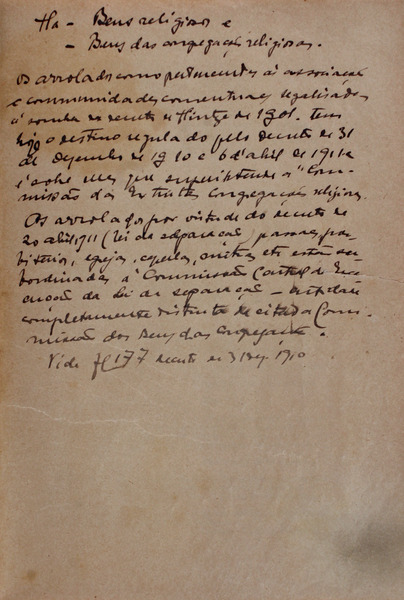 Ha - Bens religiosos e
- Bens das congregações religiosas.
Os arrolados como pertencentes á associações
e communidades conventuaes legalisadas
á sombra do decreto de Hintze de 1901. tem
hoje o destino regulado pelo decreto de 31
de Dezembro de 1910 e 6 d'abril de 1911 e
é sobre elles que superintende a "Com-
missão das Extintas Congregações religiosas.
Os arrolados por virtude do decreto de
20 abril 1911 (Lei da separação), passaes, pres-
biterios, egrejas, capelas, mitras etc estão su-
bordinados á Commissão Central de Exe-
cução da Lei da separação - entidade
completamente distinta da citada Com-
missão dos Bens das Congregações.
Vide fl 177 decreto de 31 Dez. 1910